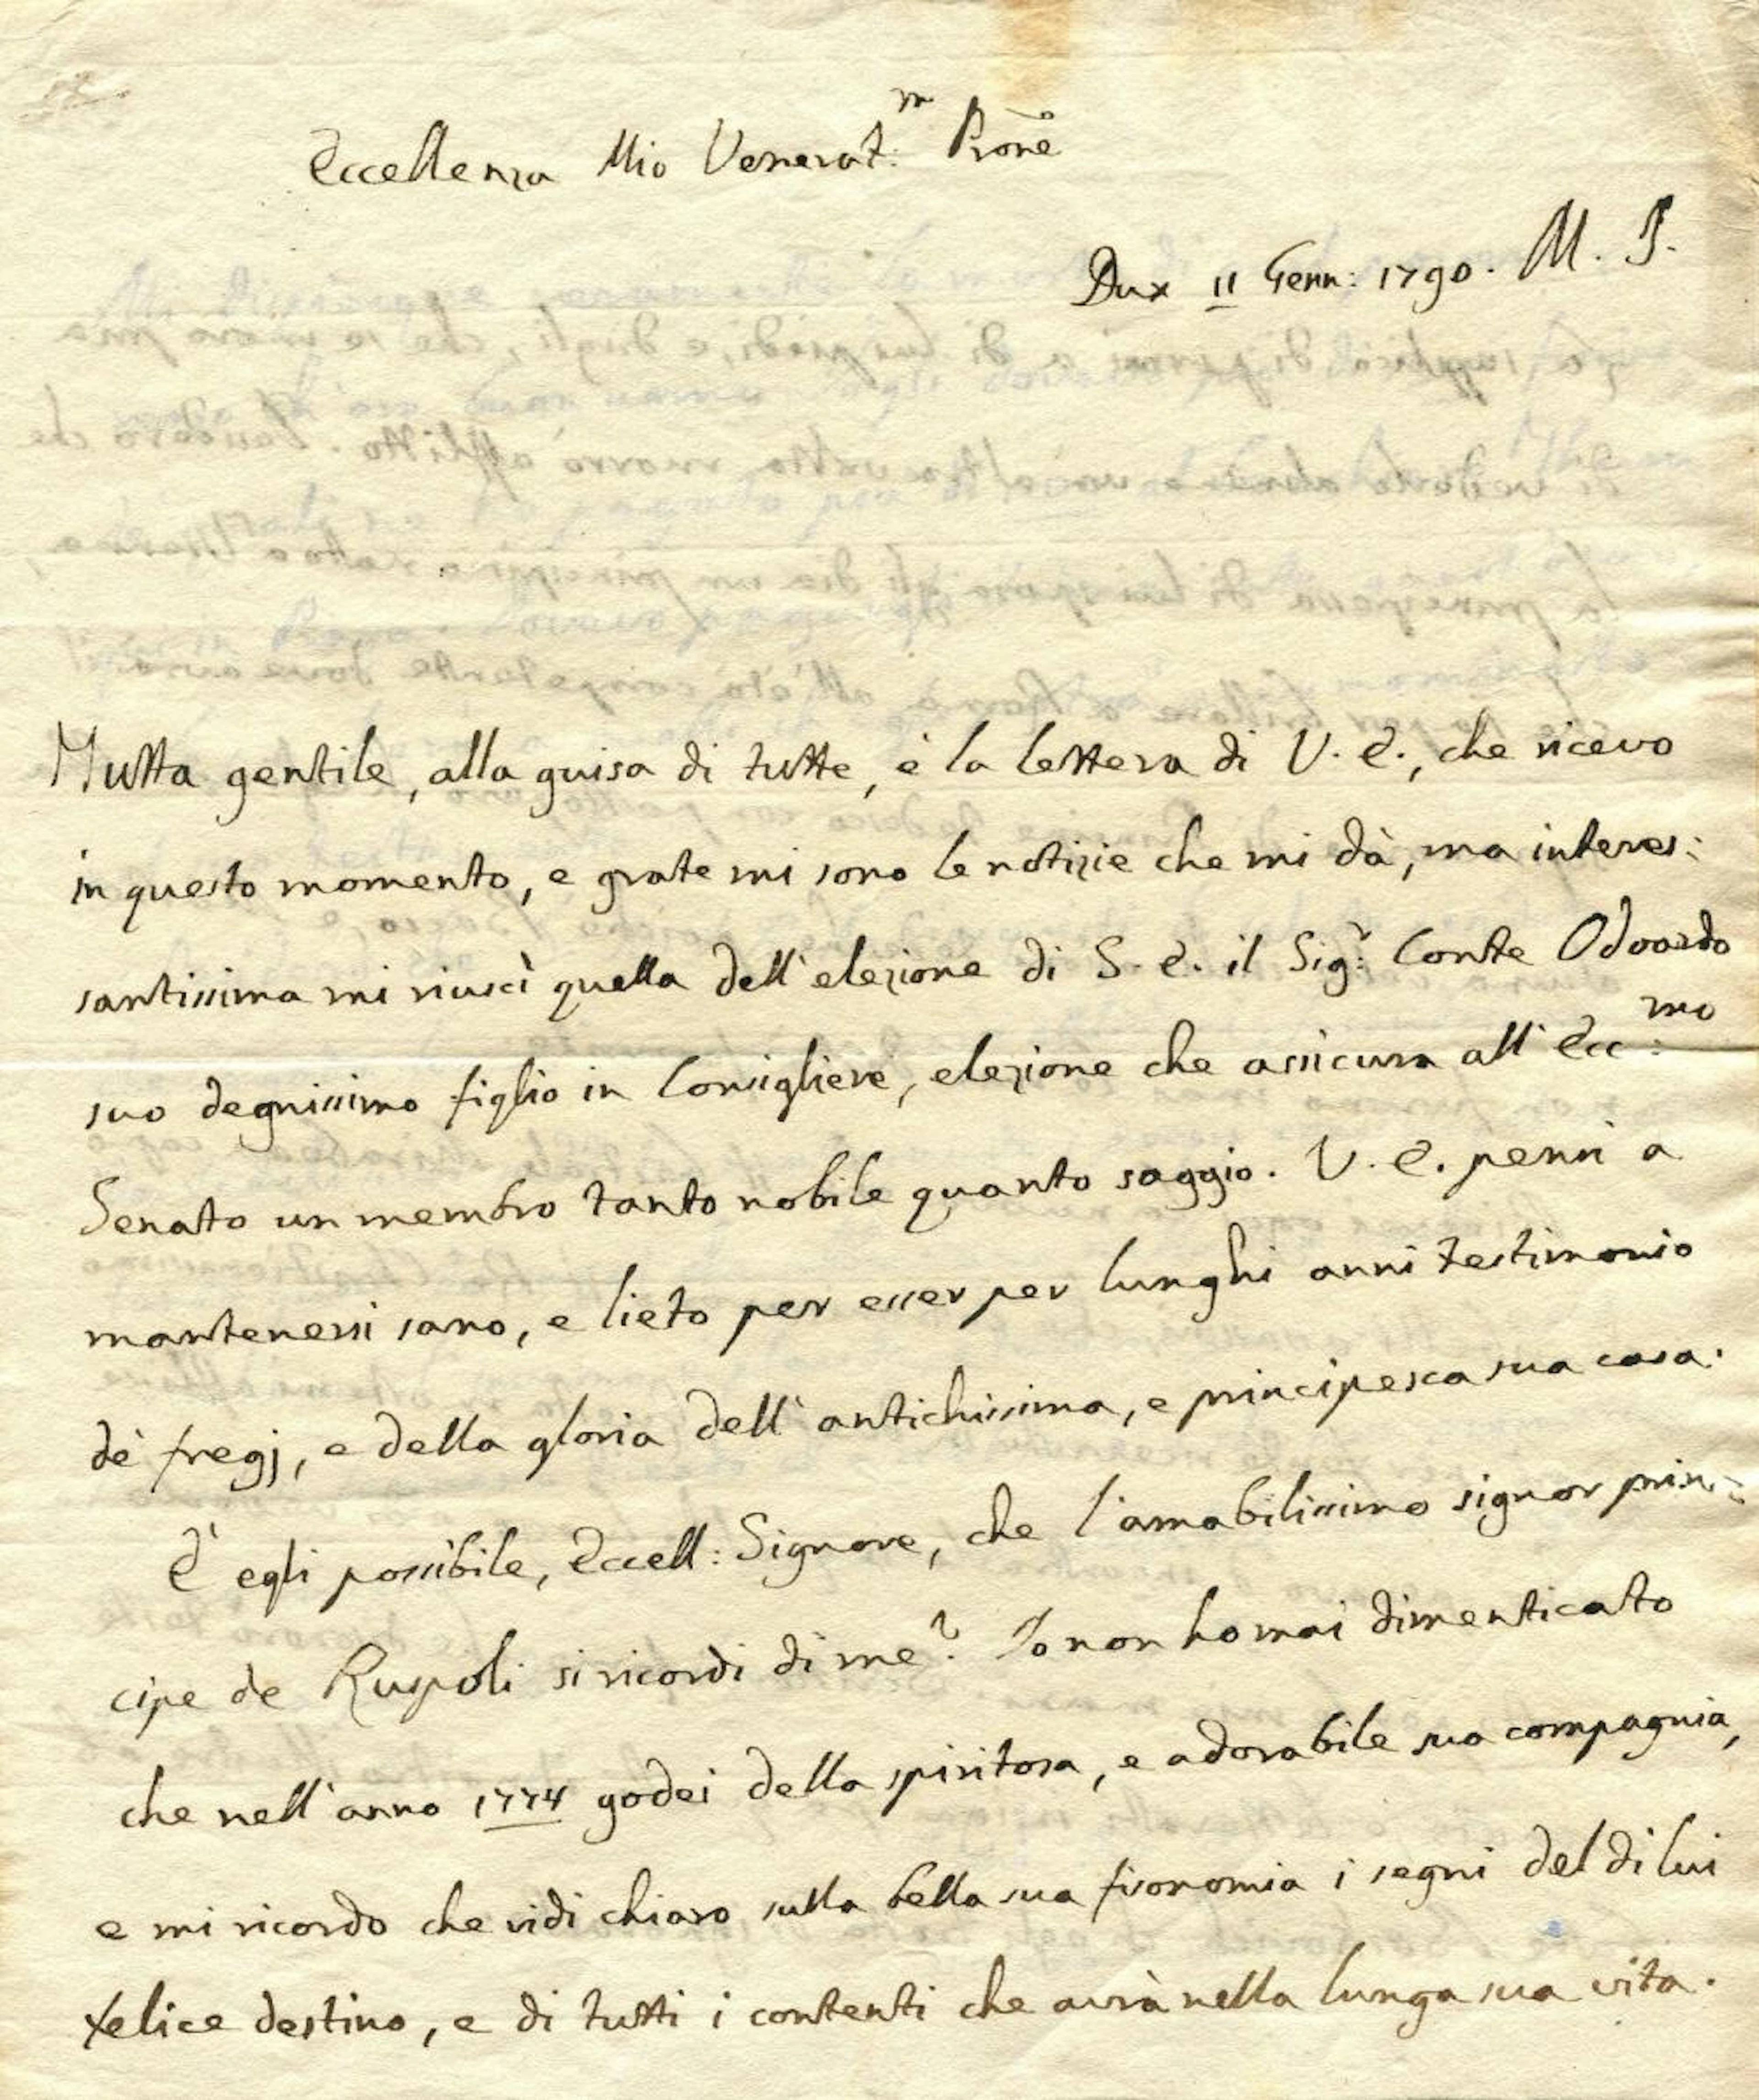 Eccellenza Mio Venerat:m Prone
Dux 11 Genn: 1790. M. P.
Tutta gentile, alla guisa di tutte, è la lettera di V. E., che ricevo
in questo momento, e grate mi sono le notizie che mi dà, ma interes:
santissima mi riuscì quella dell'elezione di S. E. il Sig:r Conte Odoardo
suo degnissimo figlio in Consigliere, elezione che assicura all'Ecc:mo
Senato un membro tanto nobile quanto saggio. V. E. pensi a
mantenersi sano, e lieto per esser per lunghi anni testimonio
dè fregj, e della gloria dell'antichissima, e principesca sua casa.
È egli possibile, Eccell: Signore, che l'amabilissimo signor prin:
cipe de Ruspoli si ricordi di me? Io non ho mai dimenticato
che nell'anno 1774 godei della spiritosa, e adorabile sua compagnia,
e mi ricordo che vidi chiaro sulla bella sua fisonomia i segni del di lui
felice destino, e di tutti i contenti che avrà nella lunga sua vita.